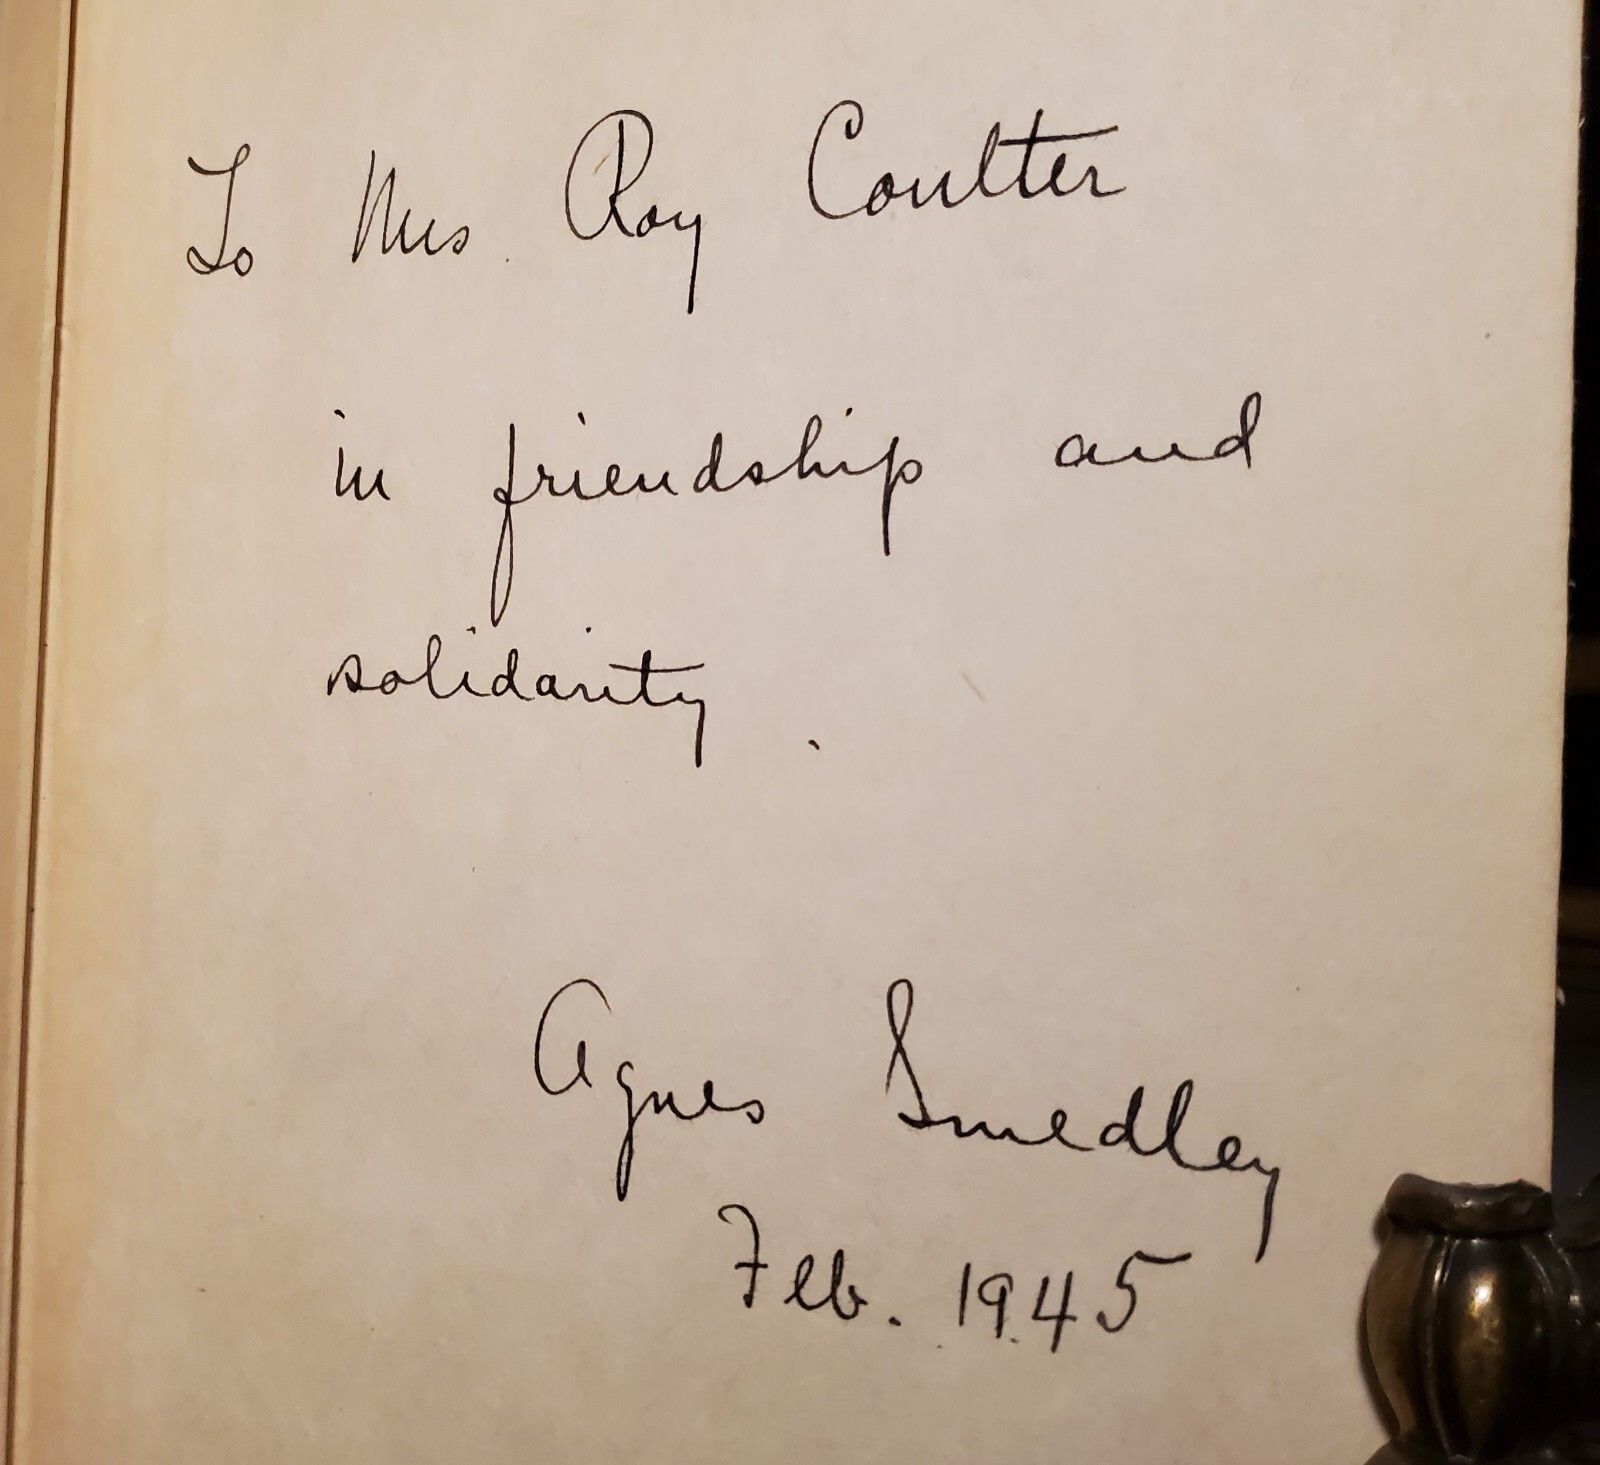 To Mrs Roy Coulter
in friendship and
solidarity.
Agnes Smedley
Feb. 1945